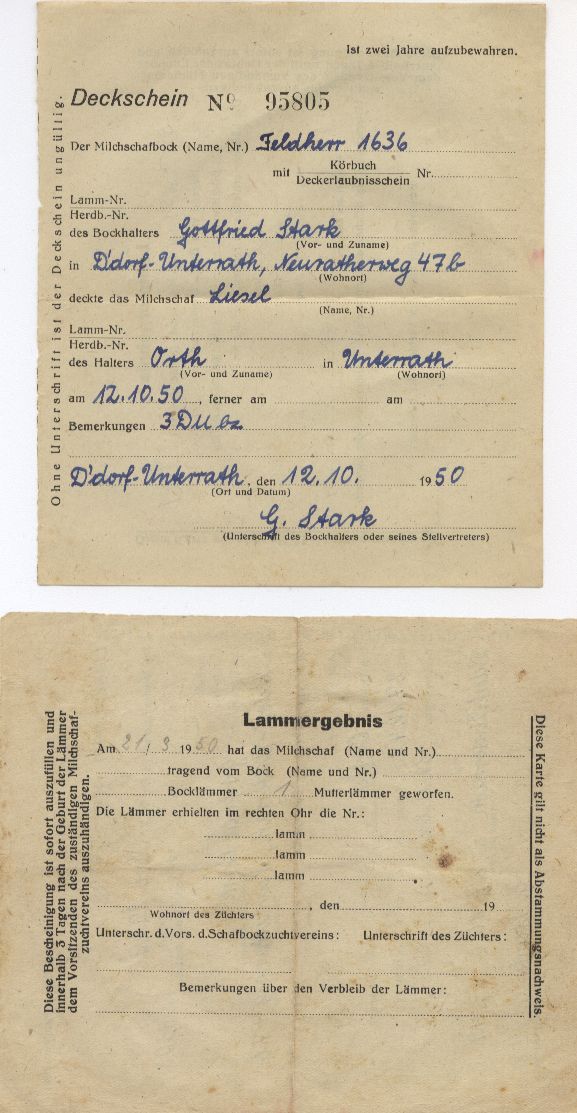 Ist zwei Jahre aufzubewahren.
Deckschein Nº 95805
Der Milchschafbock (Name, Nr.) Feldherr 1636
mit Körbuch
Deckerlaubnisschein Nr.
Lamm-Nr.
Herdb.-Nr.
des Bockhalters Gottfried Stark
(Vor- und Zuname)
in D'dorf-Unterrath, Neuratherweg 47b
(Wohnort)
deckte das Milchschaf Liesel
(Name, Nr.)
Lamm-Nr.
Herdb.-Nr.
des Halters Orth in Unterrath
(Vor- und Zuname) (Wohnort)
am 12.10.50, ferner am am
Bemerkungen 3 DM
D'dorf-Unterrath, den 12.10. 1950
(Ort und Datum)
G. Stark
(Unterschrift des Bockhalters oder seines Stellvertreters)
Ohne Unterschrift ist der Deckschein ungültig.
Lammergebnis
Am 21. 3 1950 hat das Milchschaf (Name und Nr.)
tragend vom Bock (Name und Nr.)
Bocklämmer 1 Mutterlämmer geworfen.
Die Lämmer erhielten im rechten Ohr die Nr.:
lamm
lamm
lamm
, den 19
Wohnort des Züchters
Unterschr. d. Vors. d. Schafbockzuchtvereins: Unterschrift des Züchters:
Bemerkungen über den Verbleib der Lämmer:
Diese Bescheinigung ist sofort auszufüllen und
innerhalb 3 Tagen nach der Geburt der Lämmer
dem Vorsitzenden des zuständigen Milchschaf-
zuchtvereins auszuhändigen.
Diese Karte gilt nicht als Abstammungsnachweis.